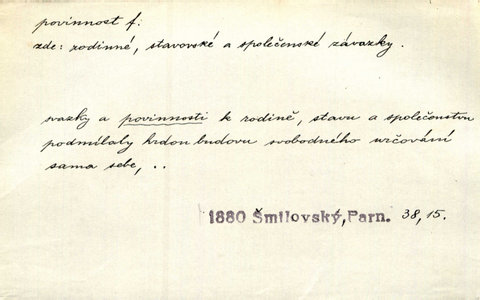 povinnost f.
zde: rodinné, stavovské a společenské závazky.
svazky a povinnosti k rodině, stavu a společenstvu
podmílaly hrdou budovu svobodného určování
sama sebe, ..
1880 Šmilovský, Parn. 38, 15.